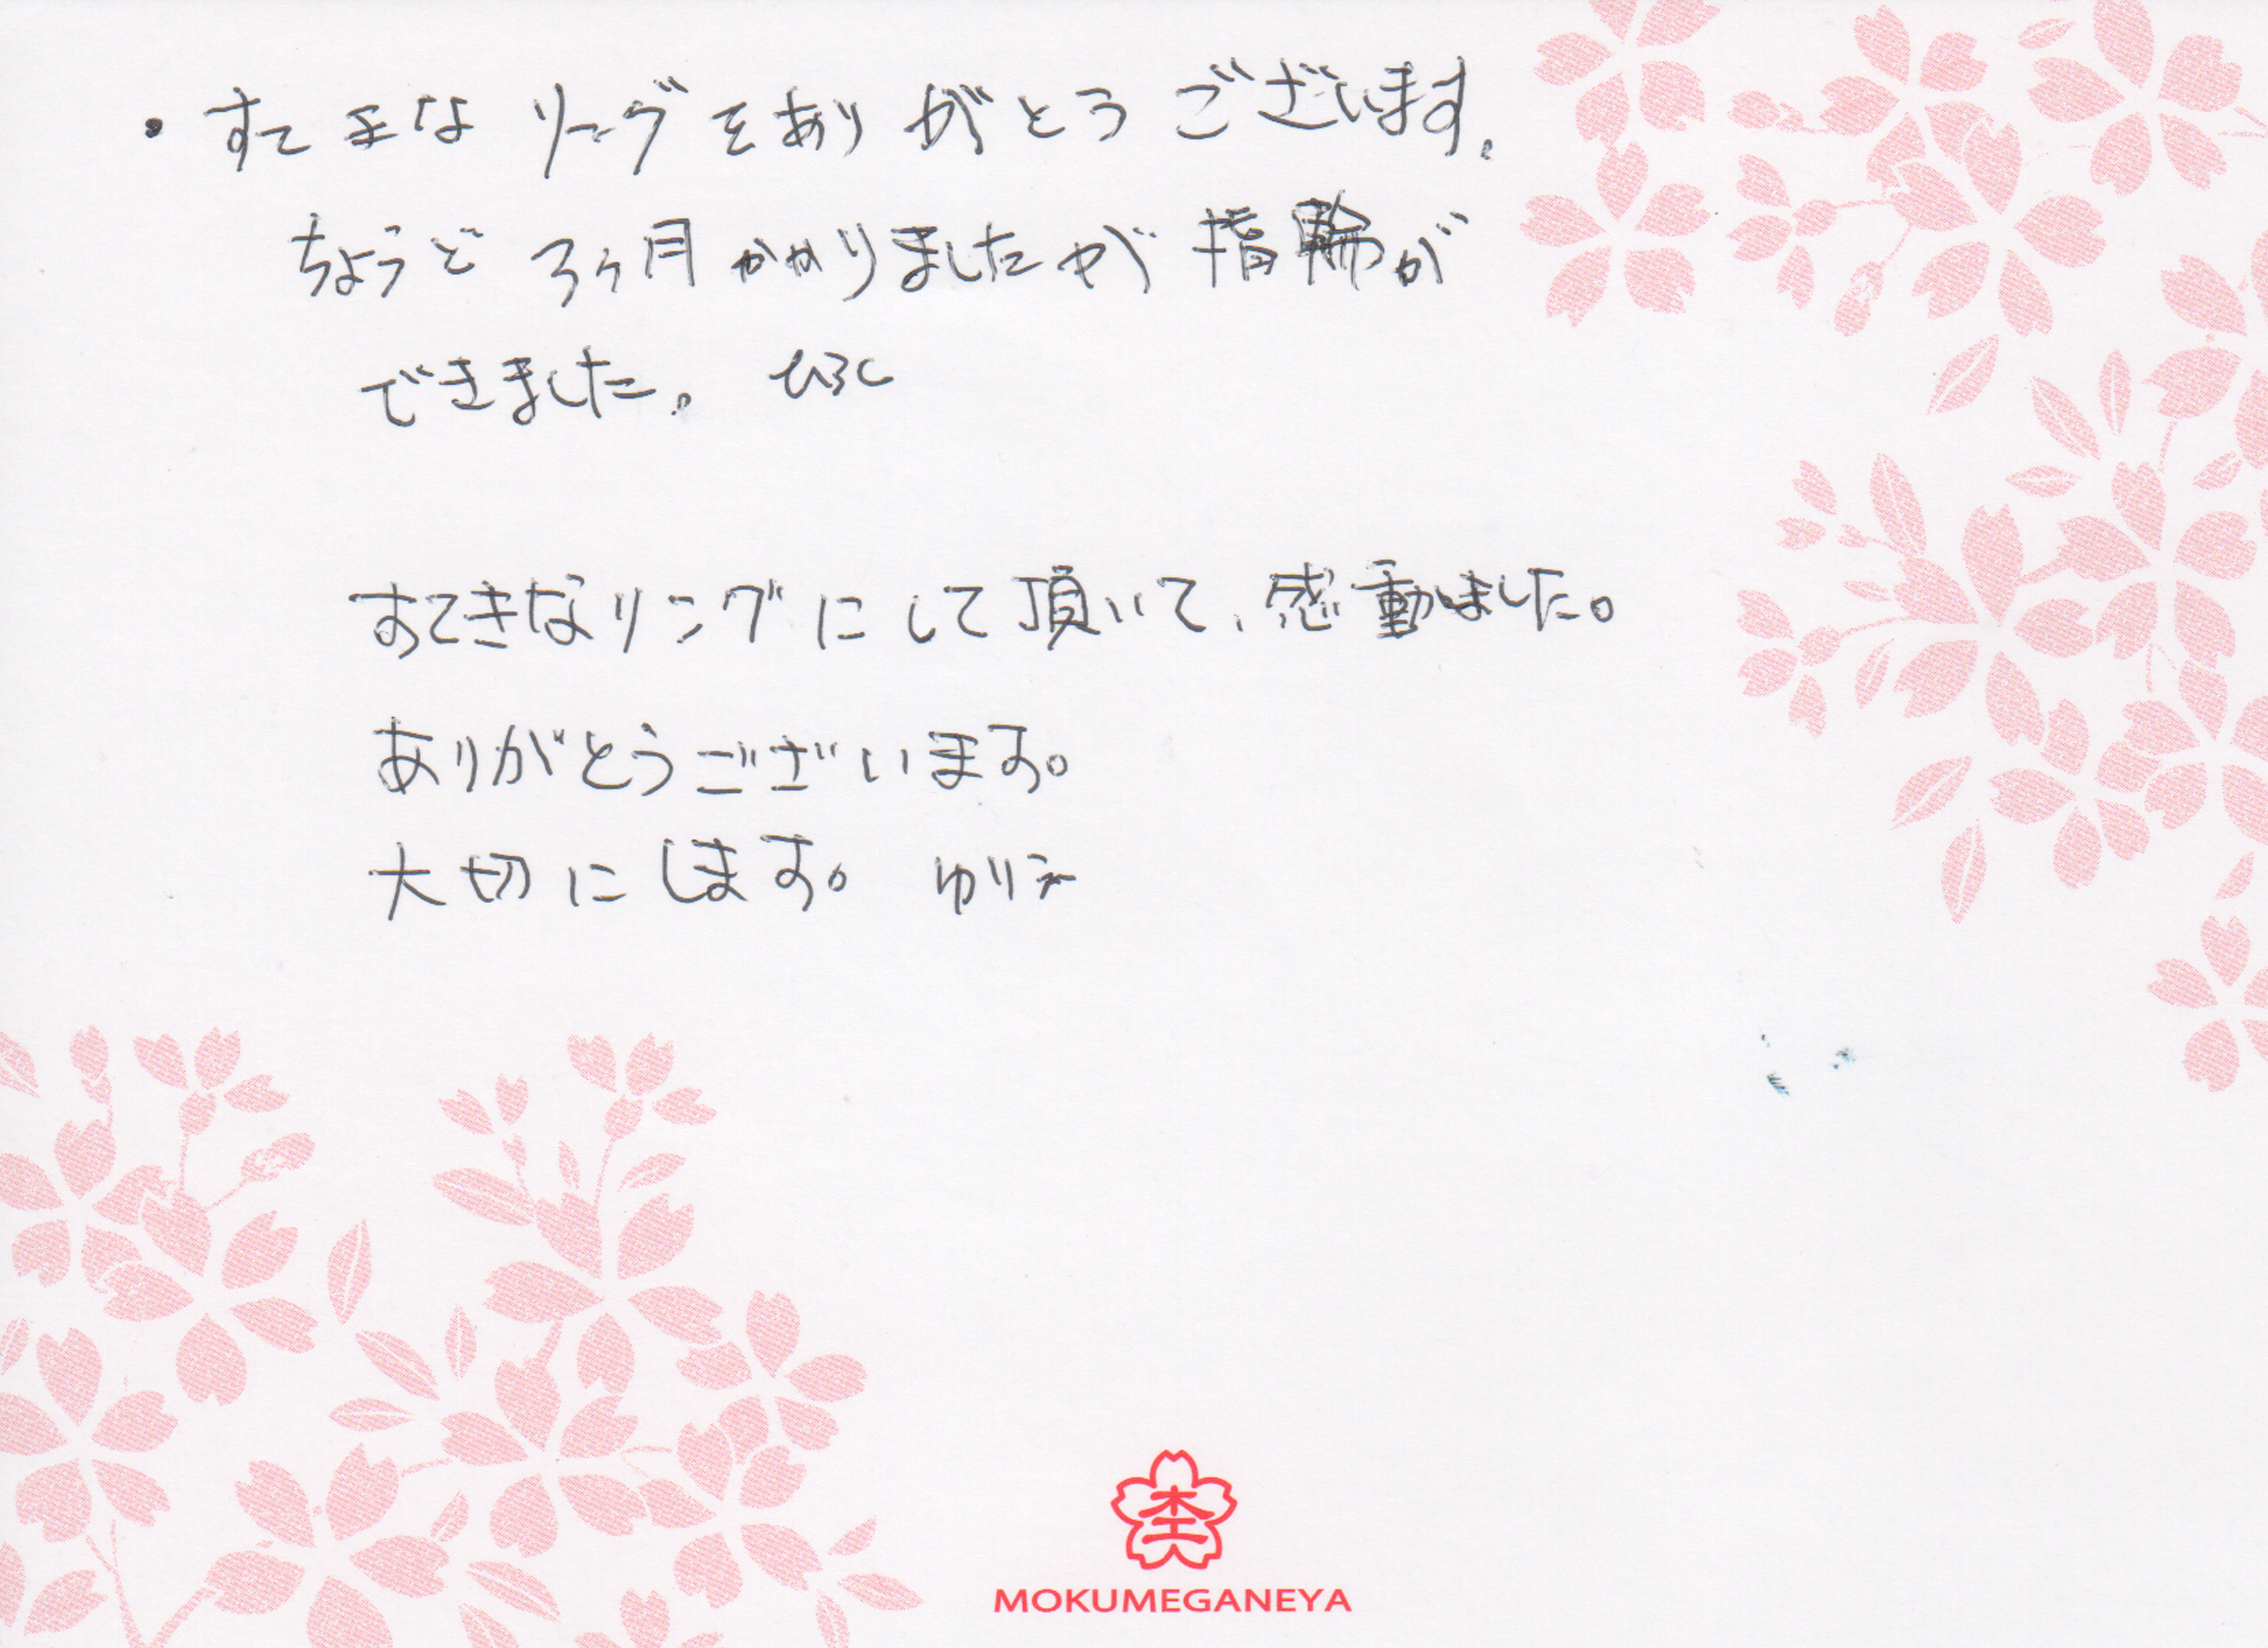 ・すてきなリングをありがとうございます。
ちょうど3ヶ月かかりましたが指輪が
できました。 ひろし
すてきなリングにして頂いて、感動しました。
ありがとうございます。
大切にします。 ゆりえ
杢
MOKUMEGANEYA